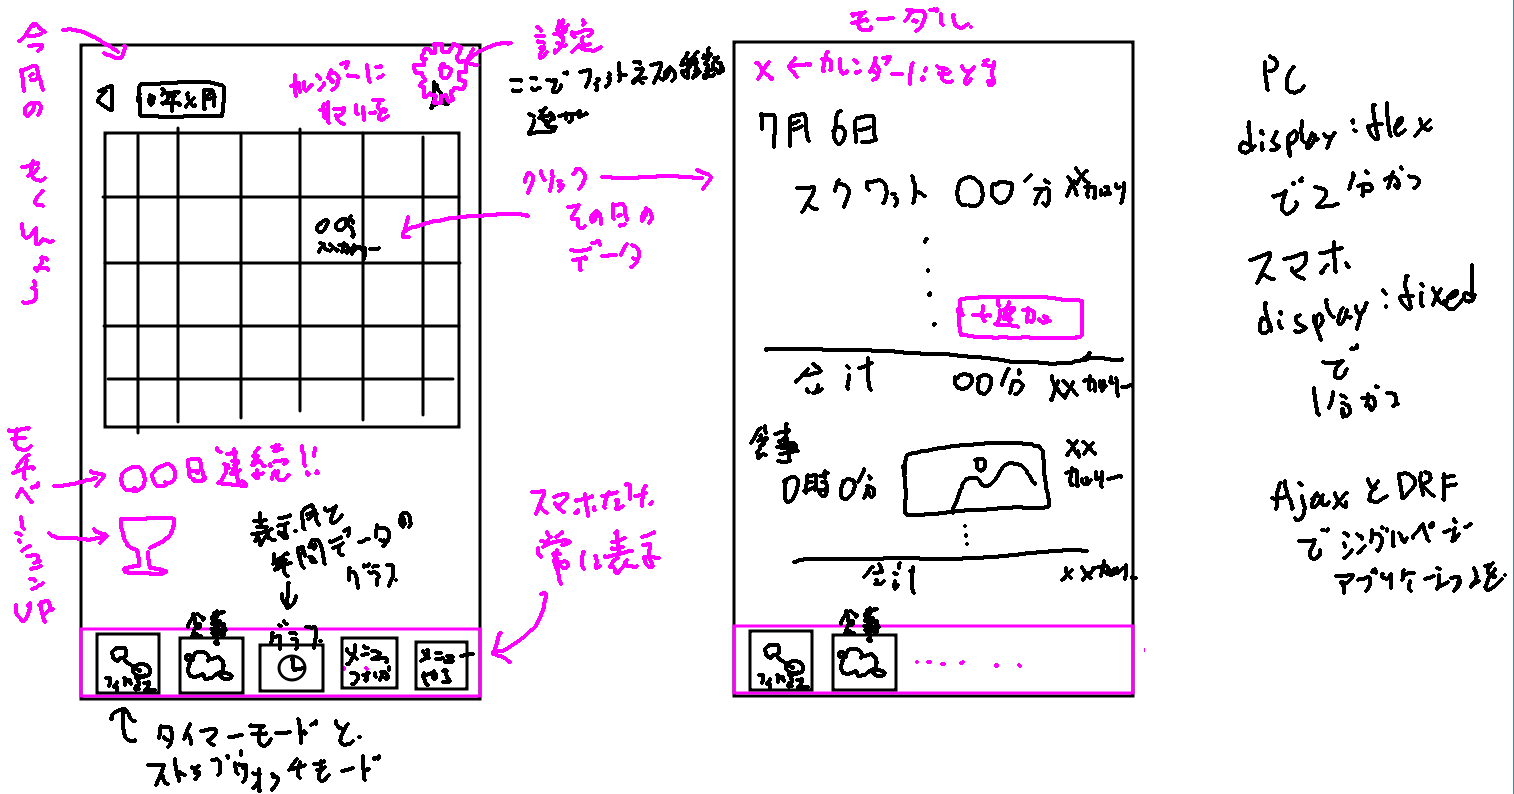 今月の
もくひょう
0年x月
カレンダーに
サマリーを
設定
ここでフィットネスの種類
追加
クリック
その日の
データ
00分
xxカロリー
モチベーションUP
〇〇日連続!!
表示月と
年間データの
グラフ
スマホだけ
常に表示
フィットネス
食事
グラフ
メニュー
メニュー
タイマーモードと
ストップウォッチモード
モーダル
x ←カレンダーにもどる
7月6日
スクワット 〇〇分 xxカロリー
+追加
合計 〇〇分 xxカロリー
食事
0時0分
xx
カロリー
合計 xxカロリー
フィットネス
食事
PC
display:flex
で2分かつ
スマホ
display:fixed
で
1分かつ
AjaxとDRF
でシングルページ
アプリケーションを